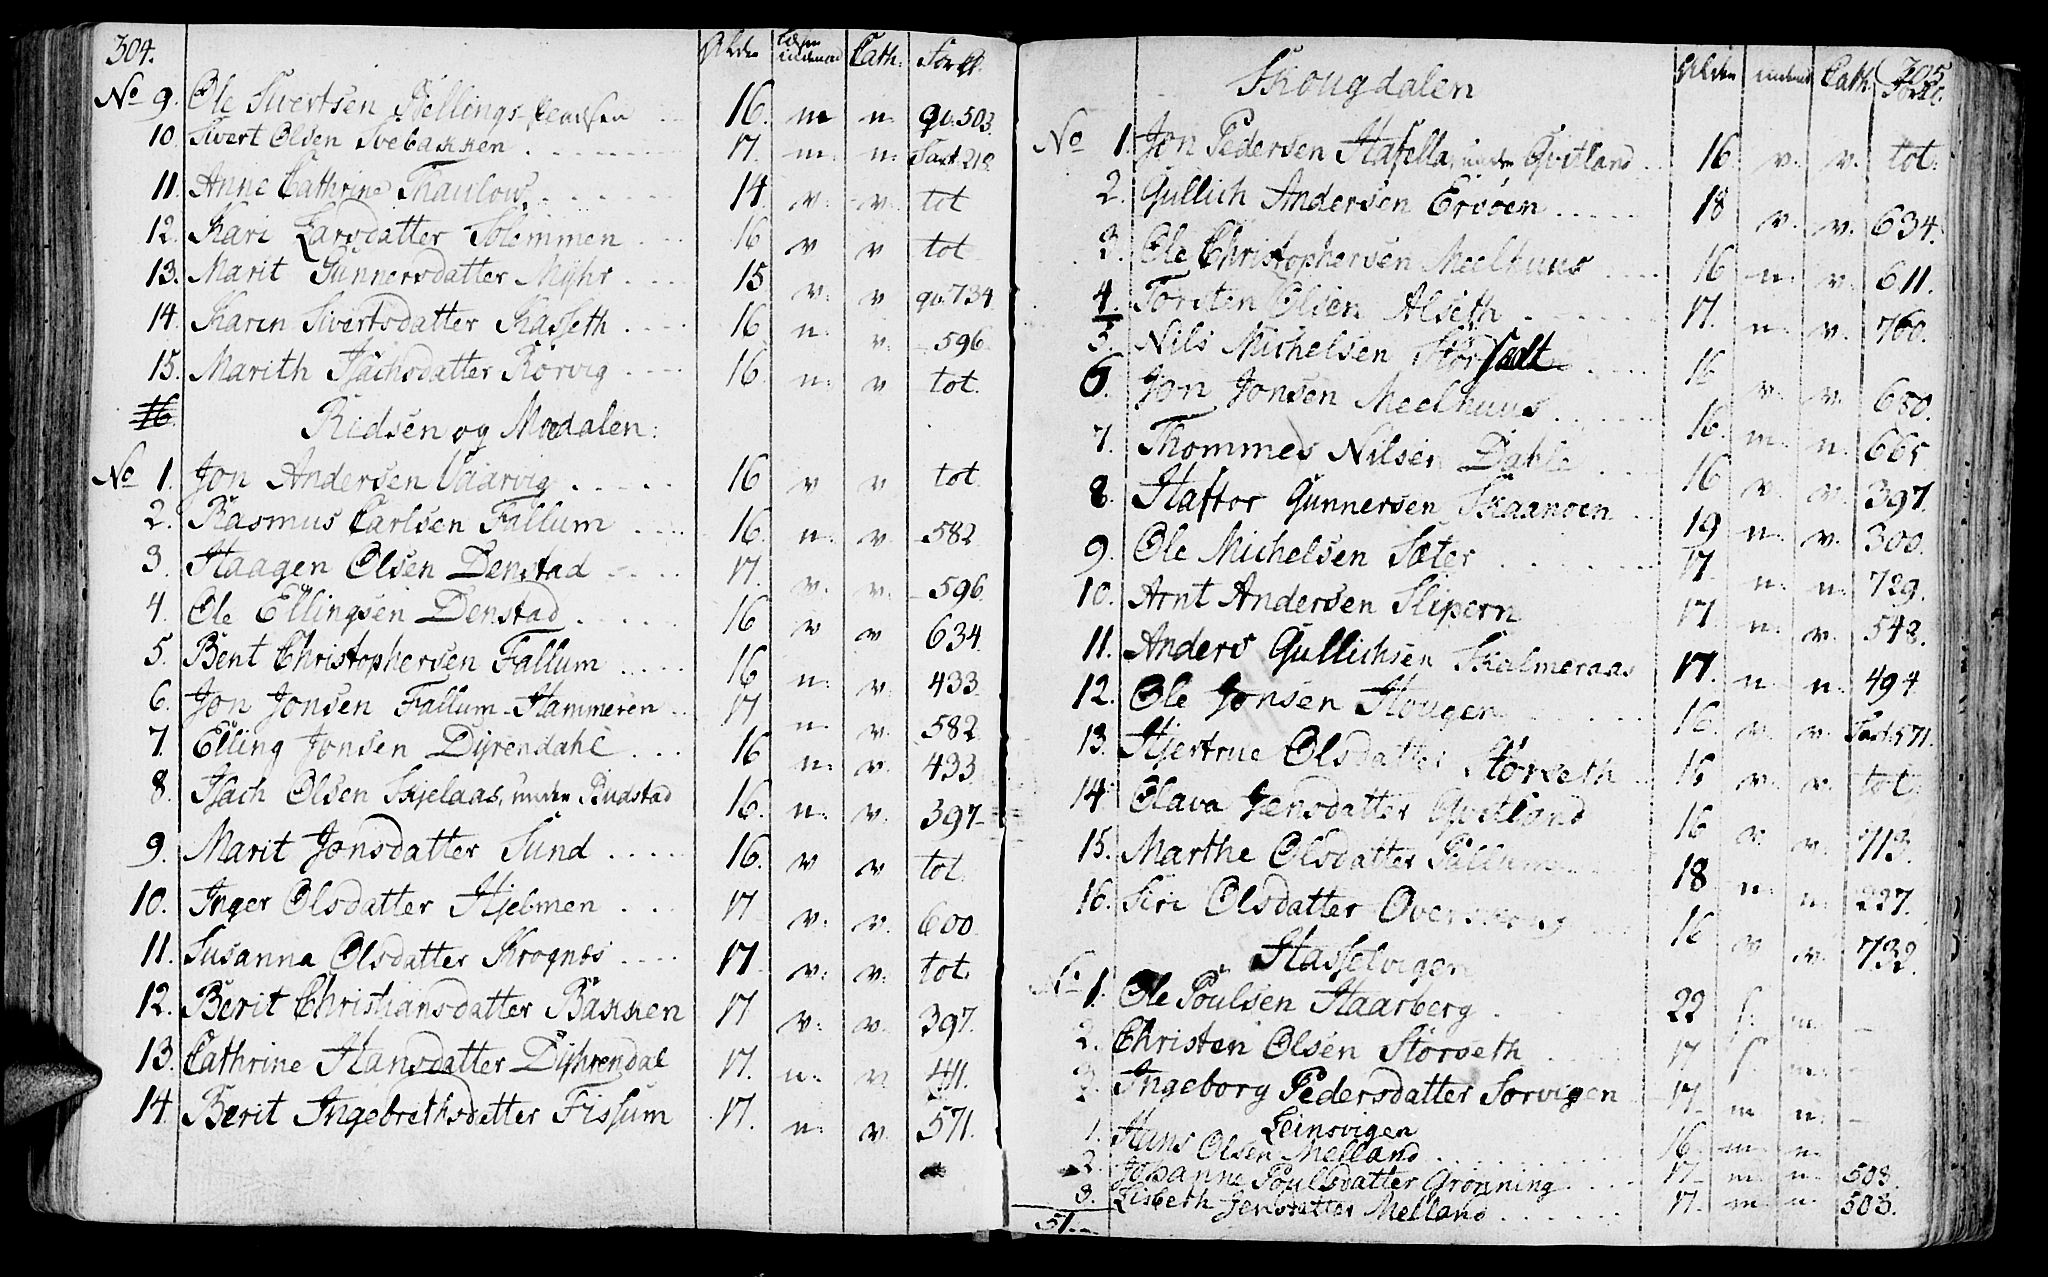 304. Alder Cath:
No 9. Ole Sivertsen 16. m n. qv. 503.
10. Sivert Olsen Svebakken 17. m: n: Sart 218.
11. Anne Cathrine Thaulow 14 v: v: tot
12. Kari Larsdatter Solemmen 16 v v tot
13. Marit Gunnersdatter Myhr 15 v: v qv. 734
14. Karen Sivertsdatter Kasseth 16 n: v. 596
15. Marith Isachsdatter Rørvig 16. n: v tot.
16
Ridsen og Modalen:
No 1. Jon Andersen Vaarvig 16 v v tot
2. Rasmus Carlsen Fallum 16. n: v 582
3. Haagen Olsen Denstad 17. v: v: 596.
4. Ole Ellingsen Denstad 16 v v 634.
5. Bent Christophersen Fallum 16 n: v: 433.
6. Jon Jonsen Fallum-Hammeren 17 n: v. 582
7. Elling Jonsen Dyrendahl 16 n: v. 433
8. Isach Olsen Skjelaas, under Rudstad 16. n: v. 397
9. Marit Jonsdatter Sund 16. v v tot.
10. Inger Olsdatter Hjelmen 17 v: v: 600
11. Susanna Olsdatter Krognes 17 v: v: tot.
12. Berit Christiansdatter Bakken 17 v: v. 397.
13. Cathrine Hansdatter Dyhrendal 17. n: v: 411.
14. Berit Ingebrethsdatter Fissum 17. n: v. 571.
Skougdalen Alder Cath: 305
No 1. Jon Pedersen Hafella, under Qvitland 16 v. v. tot.
2. Gullich Andersen Ersøen 18 v. v. 634.
3. Ole Christophersen Meelhuus 16 n. v. 611.
4. Torsten Olsen Alseth 17. n. v. 760.
5. Nils Michelsen 16 v. v. 680.
6. Jon Jonsen Meelhuus 16. m: n. 665
7. Thommes Nilsen Dahle 16 v. v. 397
8. Haftor Gunnersen Skaanøen 19 n: v. 300.
9. Ole Michelsen Sæter 17 n: n: 729.
10. Arnt Andersen Slipern 17. n. v. 548.
11. Anders Gullichsen Skalmeraas 17. n n: 494
12. Ole Jonsen Hougen 16. v. v. Sart. 571.
13. Hjertrue Olsdatter Størseth 16 v. v. tot.
14 Olava Jensdatter Qvitland 16 v. v. 713.
15. Marthe Olsdatter Fallum 18 n. n: 227.
16. Siri Olsdatter 16 v v. 732.
Hasselvigen
No 1. Ole Poulsen Haarberg 22 s: m. –
2. Christen Olsen Størseth 17 s m: –
3. Ingeborg Pedersdatter Sørvigen 17 m n: –
Leinsvigen
1. Hans Olsen Melland 16. m: n
2. Johanne Poulsdatter Grønning 17 m: n. 503.
3. Lisbeth Jensdatter Melland 17. m: n. 503.
51.